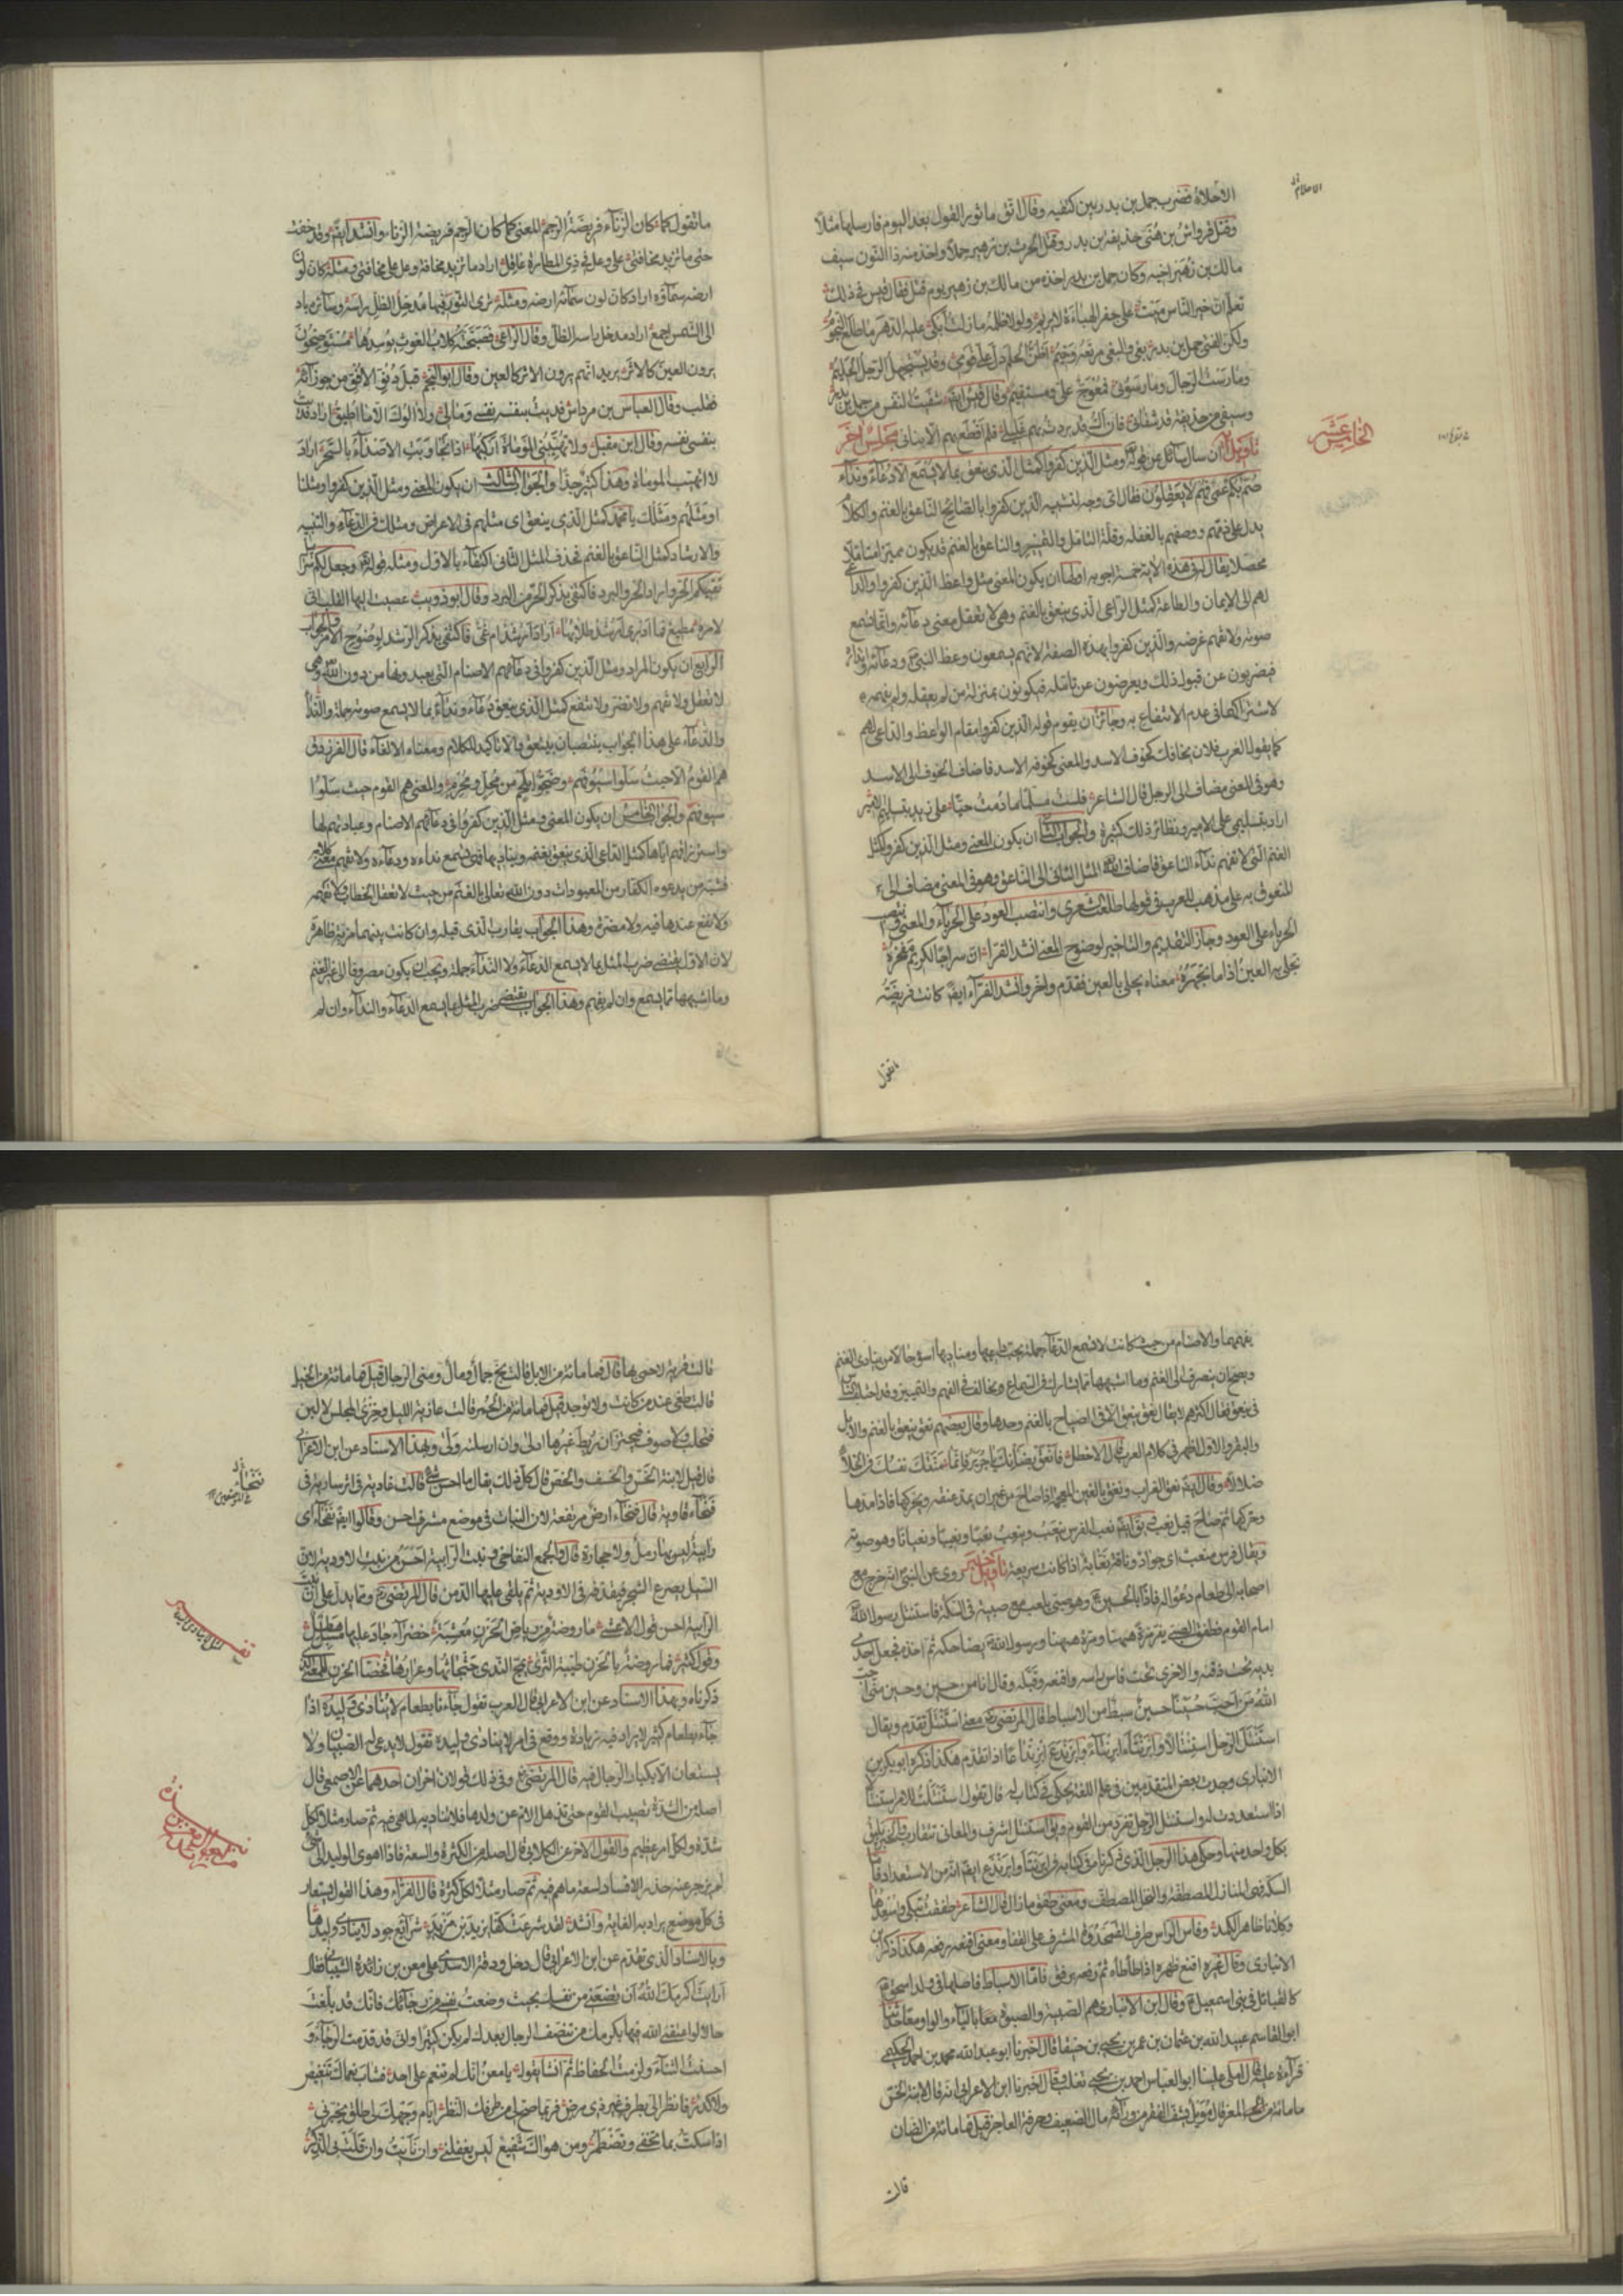 الاحلام
الاخلاء فضرب حمل بن بدر بين كتفيه وقال اتق ماثور القول بعد اليوم فارسلها مثلا
وقتل قرواش بن هنى حذيفة بن بدر وقتل الحرث بن زهير حملا واخذ منه ذا النون سيف
مالك بن زهير اخيه وكان حمل بن بدر اخذه من مالك بن زهير يوم قتل فقال قيس فى ذلك
تعلم ان خير الناس ميت على جفر الهباءة لا يريم ولولا ظلمه ما زلت ابكى عليه الدهر ما طلع النجوم
ولكن الفتى حمل بن بدر بغى والبغى مرتعه وخيم اظن الحلم دل على قومى وقد يستجهل الرجل الحليم
ومارست الرجال ومارسونى فمعوج على ومستقيم وقال قيس ايضا شفيت النفس من حمل بن بدر
وسيفى من حذيفة قد شفانى فان اك قد بردت بهم غليلى فلم اقطع بهم الا بنانى مجلس اخر
الخامس عشر
تاويل اية ان سال سائل عن قوله ومثل الذين كفروا كمثل الذى ينعق بما لا يسمع الا دعاء ونداء
صم بكم عمى فهم لا يعقلون فقال اى وجه لتشبيه الذين كفروا بالصائح الناعق بالغنم والكلام
يدل على ذمهم ووصفهم بالغفلة وقلة التامل والتمييز والناعق بالغنم قد يكون مميزا متاملا
محصلا يقال له فى هذه الاية خمسة اجوبة اولها ان يكون المعنى مثل واعظ الذين كفروا والداعى
لهم الى الايمان والطاعة كمثل الراعى الذى ينعق بالغنم وهى لا تعقل معنى دعائه وانما تسمع
صوته ولا تفهم غرضه والذين كفروا بهذه الصفة لانهم يسمعون وعظ النبى ودعائه وانذاره
فيضربون عن قبول ذلك ويعرضون عن تامله فيكونون بمنزلة من لم يعقله ولم يفهمه
لاشتراكهما فى عدم الانتفاع به وجائز ان يقوم قوله الذين كفروا مقام الواعظ والداعى لهم
كما يقول العرب فلان يخافك كخوف الاسد والمعنى كخوفه الاسد فاضاف الخوف الى الاسد
وهو فى المعنى مضاف الى الرجل قال الشاعر فلست مسلما ما دمت حيا على زيد بتسليم الامير
اراد بتسليمى على الامير ونظائر ذلك كثيرة والجواب الثانى ان يكون المعنى ومثل الذين كفروا كمثل
الغنم التى لا تفهم نداء الناعق فاضاف الله المثل الثانى الى الناعق وهو فى المعنى مضاف الى
المنعوق به على مذهب العرب فى قولها طلعت الشعرى وانتصب العود على الحرباء والمعنى وانتصب
الحرباء على العود وجاز التقديم والتاخير لوضوح المعنى انشد الفراء ان سراجا لكريم مفخره
تحلى به العين اذا ما تجهره معناه يحلى بالعين فقدم واخر وانشد الفراء ايضا كانت فريضة
ما تقول
ما تقول كما كان الزناء فريضة الرجم المعنى كما كان الرجم فريضة الزناء وانشد ايضا وقد خفت
حتى ما تزيد مخافتى على وعل فى ذى المطارة عاقل اراد ما تزيد مخافة وعل على مخافتى ومثله كان لون
ارضه سماؤه اراد كان لون سمائه ارضه ومثله ترى الثور فيها مدخل الظل راسه وسائره باد
الى الشمس اجمع اراد مدخل راسه الظل وقال الراعى فصبحته كلاب الغوث يوسدها مستوضحون
يرون العين كالاثر يريد انهم يرون الاثر كالعين وقال ابو النجم قبل دنو الافق من جوزائه
فقلب وقال العباس بن مرداس فديت بنفسه نفسى ومالى ولا الوك الا ما اطيق اراد فديت
بنفسى نفسه وقال ابن مقبل ولا تهيبنى الموماة اركبها اذا تجاوبت الاصداء بالسحر اراد
لا اتهيب الموماة وهذا كثير جدا والجواب الثالث ان يكون المعنى ومثل الذين كفروا ومثلنا
او مثلهم ومثلك يا محمد كمثل الذى ينعق اى مثلهم فى الاعراض ومثلك فى الدعاء والتنبيه
والارشاد كمثل الناعق بالغنم فحذف المثل الثانى اكتفاء بالاول ومثله قوله وجعل لكم سرابيل
تقيكم الحر واراد الحر والبرد فاكتفى بذكر الحر من البرد وقال ابو ذويب عصيت اليها القلب انى
لامره مطيع فما ادرى ارشد طلابها اراد ارشد ام غى فاكتفى بذكر الرشد لوضوح الامر والجواب
الرابع ان يكون المراد ومثل الذين كفروا فى دعائهم الاصنام التى يعبدونها من دون الله وهى
لا تعقل ولا تفهم ولا تضر ولا تنفع كمثل الذى ينعق دعاء ونداء بما لا يسمع صوته جملة والنداء
والدعاء على هذا الجواب ينتصبان بينعق والا تاكيد للكلام ومعناه الالغاء قال الفرزدق
هم القوم الا حيث سلوا سيوفهم وضحوا بلحم من محل ومحرم والمعنى هم القوم حيث سلوا
سيوفهم والجواب الخامس ان يكون المعنى ومثل الذين كفروا فى دعائهم الاصنام وعبادتهم لها
واسترزاقهم اياها كمثل الراعى الذى ينعق بغنمه ويناديها فهى تسمع نداءه ودعاءه ولا تفهم معنى كلامه
فشبه من يدعوه الكفار من المعبودات دون الله تعالى بالغنم من حيث لا تعقل الخطاب ولا تفهمه
ولا نفع عندها فيه ولا مضرة وهذا الجواب يقارب الذى قبله وان كانت بينهما مزية ظاهرة
لان الاول يقتضى ضرب المثل بما لا يسمع الدعاء ولا النداء جملة ويجب ان يكون مصروفا الى غير الغنم
وما اشبهها مما يسمع وان لم يفهم وهذا الجواب يقتضى ضرب المثل بما يسمع الدعاء والنداء وان لم
يفهمهما والاصنام من حيث كانت لا تسمع الدعاء جملة يجب ان يكون داعيها ومناديها اسوء حالا من منادى الغنم
ويصح ان يصرف الى الغنم وما اشبهها مما يشارك فى السماع ويخالف فى الفهم والتمييز وقد اختلف الناس
فى ينعق فقال اكثرهم لا يقال نعق ينعق الا فى الصياح بالغنم وحدها وقال بعضهم نعق ينعق بالغنم والابل
والبقر والاول اظهر فى كلام العرب قال الاخطل فانعق بضانك يا جرير فانما منتك نفسك فى الخلاء
ضلالا وقال ايضا نعق الغراب ونغق بالغين المعجمة اذا صاح من غير ان يمد عنقه ويحركها فاذا مدها
وحركها ثم صاح قيل نعب ويقال ايضا نعب الفرس ينعب وينعب نعبا ونعيبا ونعبانا وهو صوته
ويقال فرس منعب اى جواد وناقة نعابة اذا كانت سريعة تاويل خبر روى عن النبى انه خرج مع
اصحابه الى طعام دعوا له فاذا بالحسين وهو صبى يلعب مع صبية فى السكة فاستنتل رسول الله
امام القوم فطفق الصبى يفر مرة ههنا ومرة ههنا ورسول الله يضاحكه ثم اخذه فجعل احدى
يديه تحت ذقنه والاخرى تحت فاس راسه واقنعه وقبله وقال انا من حسين وحسين منى احب
الله من احب حسينا حسين سبط من الاسباط قال المرتضى معنى استنتل تقدم ويقال
استنتل الرجل استنتالا وابرنتى ابرنتاء وابرنذع ابرنذاعا اذا تقدم هكذا ذكره ابو بكر بن
الانبارى ووجدت بعض المتقدمين فى علم اللغة يحكى فى كتاب له قال تقول استنتلت للامر استنتالا
اذا استعددت له واستنتل الرجل تفرد من القوم ويقال استنتل اشرف والمعانى تتقارب والخبر يليق
بكل واحد منها وحكى هذا الرجل الذى ذكرناه فى كتابه فى ابرنتى وابرنذع ايضا انه من الاستعداد فاما
السكة فهى المنازل المصطفة والنخل المصطف ومعنى طفق ما زال قال الشاعر طفقت تبكى واسعدها
وكلانا ظاهر الكمد وفاس الراس طرف القمحدوة المشرف على القفا ومعنى اقنعه رفعه هكذا ذكره ابن
الانبارى وقال غيره اقنع ظهره اذا طاطاه ثم رفعه برفق فاما الاسباط فاصلها فى ولد اسحق
كالقبائل فى بنى اسمعيل وقال ابن الانبارى هم الصبية والصبوة معا بالياء والواو معا حدثنا
ابو القاسم عبيد الله بن عثمان بن يحيى بن جنيقا قال اخبرنا ابو عبد الله محمد بن احمد الحكيمى
قراءة عليه قال املى علينا ابو العباس احمد بن يحيى ثعلب وقال اخبرنا ابن الاعرابى انه قال لابنة الخس
ما مائة من المعز قالت مويل يشف الفقر من ورائه مال الضعيف وحرفة العاجز قيل فما مائة من الضان
قالت
قالت قرية لا حمى بها قال فما مائة من الابل قالت بخ جمال ومال ومنى الرجال قيل فما مائة من الخيل
قالت طغى عند من كانت ولا يوجد قيل فما مائة من الحمر قالت عازبة الليل وخزى المجلس لا لبن
فتحلب ولا صوف فيجتز ان ربط عيرها ادلى وان ارسلته ولى وبهذا الاسناد عن ابن الاعرابى
قال قيل لابنة الخس والخسف والخص قال كل ذلك يقال ما احسن شىء قالت غادية فى اثر سارية فى
نفخاء قاوية قال نفخاء ارض مرتفعة لان النبات فى موضع مشرف احسن وقالوا ايضا نفخاء اى
رابية ليس بها رمل ولا حجارة قال والجمع النفاخى ونبت الرابية احسن من نبت الاودية لان
السيل يصرع الشجر فيقذفه فى الاودية ثم يلقى عليها الدمن قال المرتضى ومما يدل على ان نبت
الرابية احسن قول الاعشى ما روضة من رياض الحزن معشبة خضراء جاد عليها مسبل هطل
وقول كثير فما روضة بالحزن طيبة الثرى يمج الندى جثجاثها وعرارها المعنى الذى
ذكرناه وبهذا الاسناد عن ابن الاعرابى قال العرب تقول جاءنا بطعام لا ينادى وليده اذا
جاء بطعام كثير لا يراد فيه زيادة ووقع فى امر لا ينادى وليده تقول لا يدعى له الصبيان ولا
يستعان الا بكبار الرجال فيه قال المرتضى وفى ذلك قولان اخران احدهما عن الاصمعى قال
اصله من الشدة تصيب القوم حتى تذهل الام عن ولدها فلا تناديه لما هى فيه ثم صار مثلا لكل
شدة ولكل امر عظيم والقول الاخر عن الكلابى قال اصله من الكثرة والسعة فاذا اهوى الوليد الى شىء
لم يزجر عنه حذر الافساد لسعة ما هم فيه ثم صار مثلا لكل كثرة قال الفراء وهذا القول يستعار
فى كل موضع يراد به الغاية وانشد لقد شرعت كفا يزيد بن مزيد شرايع جود لا ينادى وليدها
وبالاسناد الذى تقدم عن ابن الاعرابى قال دخل ودقة الاسدى على معن بن زائدة الشيبانى فقال
ان رايت اكرمك الله ان تضعنى من نفسك بحيث وضعت نفسى من رجائك فانك قد بلغت
حالا لو اعتقنى الله فيها بكرمك من تنصف الرجال بعدك لم يكن كثيرا وانى قد قدمت الرجاء و
احسنت الثناء ولزمت الحفاظ ثم انشا يقول يا معن انك لم تنعم على احد فشاب نعماك تنغيص
ولا كدر فانظر الى بطرف غير ذى مرض فربما صح لى من طرفك النظر ايام وجهك لى طلق يخبرنى
اذا سكت بما تخفى وتضطمر ومن هواك شفيع ليس يغفلنى وان نايت وان قلت بى الذكر